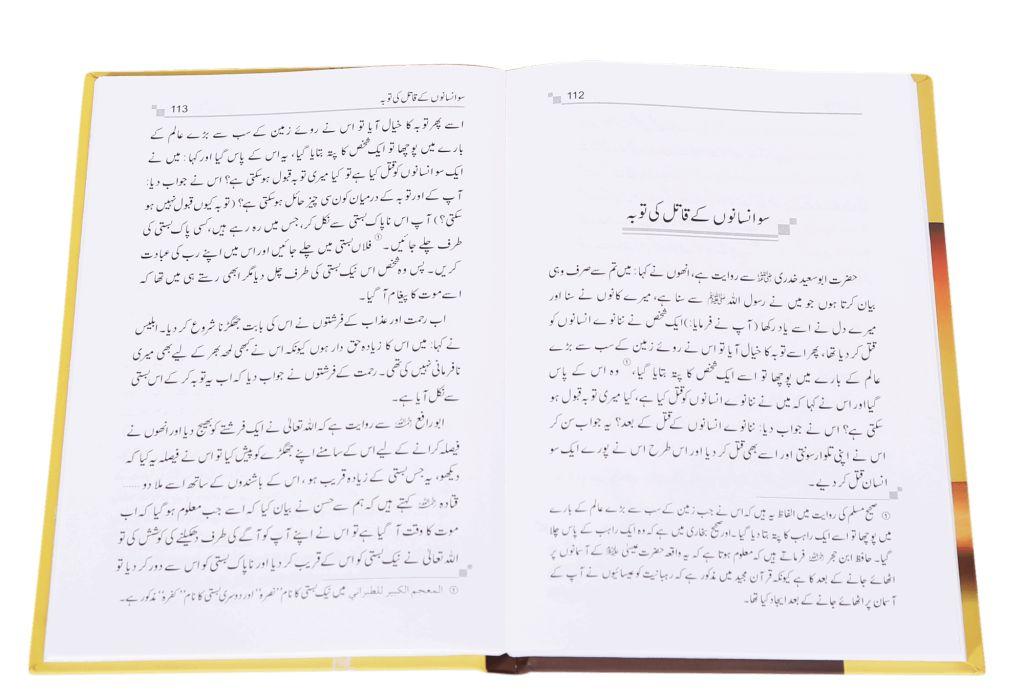 112
سو انسانوں کے قاتل کی توبہ
حضرت ابوسعید خدری ﷜ سے روایت ہے، انھوں نے کہا: میں تم سے صرف وہی
بیان کرتا ہوں جو میں نے رسول اللہ ﷺ سے سنا ہے، میرے کانوں نے سنا اور
میرے دل نے اسے یاد رکھا (آپ نے فرمایا:) ایک شخص نے ننانوے انسانوں کو
قتل کر دیا تھا، پھر اسے توبہ کا خیال آیا تو اس نے روئے زمین کے سب سے بڑے
عالم کے بارے میں پوچھا تو اسے ایک شخص کا پتہ بتایا گیا،① وہ اس کے پاس
گیا اور اس نے کہا کہ میں نے ننانوے انسانوں کو قتل کیا ہے، کیا میری توبہ قبول ہو
سکتی ہے؟ اس نے جواب دیا: ننانوے انسانوں کے قتل کے بعد؟ یہ جواب سن کر
اس نے اپنی تلوار سونتی اور اسے بھی قتل کر دیا اور اس طرح اس نے پورے ایک سو
انسان قتل کر دیے۔
① صحیح مسلم کی روایت میں الفاظ یہ ہیں کہ اس نے جب زمین کے سب سے بڑے عالم کے بارے
میں پوچھا تو اسے ایک راہب کا پتہ بتا دیا گیا۔ اور صحیح بخاری میں ہے کہ وہ ایک راہب کے پاس چلا
گیا۔ حافظ ابن حجر ﷫ فرماتے ہیں کہ معلوم ہوتا ہے کہ یہ واقعہ حضرت عیسیٰ ﷤ کے آسمانوں پر
اٹھائے جانے کے بعد کا ہے کیونکہ قرآن مجید میں مذکور ہے کہ رہبانیت کو عیسائیوں نے آپ کے
آسمان پر اٹھائے جانے کے بعد ایجاد کیا تھا۔
سو انسانوں کے قاتل کی توبہ 113
اسے پھر توبہ کا خیال آیا تو اس نے روئے زمین کے سب سے بڑے عالم کے
بارے میں پوچھا تو ایک شخص کا پتہ بتایا گیا، یہ اس کے پاس گیا اور کہا: میں نے
ایک سو انسانوں کو قتل کیا ہے تو کیا میری توبہ قبول ہو سکتی ہے؟ اس نے جواب دیا:
آپ کے اور توبہ کے درمیان کون سی چیز حائل ہو سکتی ہے؟ (توبہ کیوں قبول نہیں ہو
سکتی؟) آپ اس ناپاک بستی سے نکل کر، جس میں رہ رہے ہیں، کسی پاک بستی کی
طرف چلے جائیں۔① فلاں بستی میں چلے جائیں اور اس میں اپنے رب کی عبادت
کریں۔ پس وہ شخص اس نیک بستی کی طرف چل دیا مگر ابھی رستے ہی میں تھا کہ
اسے موت کا پیغام آ گیا۔
اب رحمت اور عذاب کے فرشتوں نے اس کی بابت جھگڑنا شروع کر دیا۔ ابلیس
نے کہا: میں اس کا زیادہ حق دار ہوں کیونکہ اس نے کبھی لمحہ بھر کے لیے بھی میری
نافرمانی نہیں کی تھی۔ رحمت کے فرشتوں نے جواب دیا کہ اب یہ توبہ کر کے اس بستی
سے نکل آیا ہے۔
ابو رافع ﷫ سے روایت ہے کہ اللہ تعالیٰ نے ایک فرشتے کو بھیج دیا اور انھوں نے
فیصلہ کرانے کے لیے اس کے سامنے اپنے جھگڑے کو پیش کیا تو اس نے فیصلہ یہ کیا کہ
دیکھو، یہ جس بستی کے زیادہ قریب ہو، اس کے باشندوں کے ساتھ اسے ملا دو ......
قتادہ ﷫ کہتے ہیں کہ ہم سے حسن نے بیان کیا کہ اسے جب معلوم ہو گیا کہ اب
موت کا وقت آ گیا ہے تو اس نے اپنے آپ کو آگے کی طرف دھکیلنے کی کوشش کی تو
اللہ تعالیٰ نے نیک بستی کو اس کے قریب کر دیا اور ناپاک بستی کو اس سے دور کر دیا تو
① المعجم الكبير للطبراني میں نیک بستی کا نام ’’نصرہ‘‘ اور دوسری بستی کا نام ’’کفرہ‘‘ مذکور ہے۔